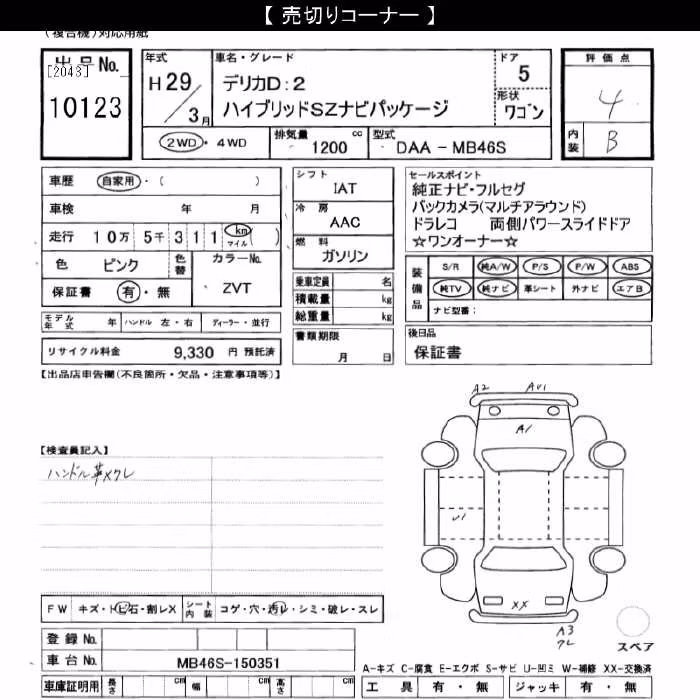 【 売切りコーナー 】
(複合機)対応用紙
出品No.
[2043]
10123
年式
H29/3月
車名・グレード
デリカD:2
ハイブリッドSZナビパッケージ
ドア
5
形状
ワゴン
評価点
4
内装
B
2WD・4WD
排気量
1200 cc
型式
DAA - MB46S
車歴 自家用・( )
車検 年 月
走行 10万 5千 3 1 1 km マイル ( )
色 ピンク 色替
カラーNo.
ZVT
保証書 有・無
モデル年式 年 ハンドル 左・右 ディーラー・並行
リサイクル料金 9,330 円 預託済
シフト
IAT
冷房
AAC
燃料
ガソリン
乗車定員 名
積載量 kg
総重量 kg
書類期限
月 日
セールスポイント
純正ナビ・フルセグ
バックカメラ(マルチアラウンド)
ドラレコ 両側パワースライドドア
☆ワンオーナー☆
装備品
S/R 純A/W P/S P/W ABS
純TV 純ナビ 革シート 外ナビ エアB
ナビ型番:
後日品
保証書
【出品店申告欄(不良箇所・欠品・注意事項等)】
【検査員記入】
ハンドル革スレ
A2 AU1
A1
U1
XX
A3
クレ
スペア
FW キズ・トビ石・割レX シート内装 コゲ・穴・汚レ・シミ・破レ・スレ
登録No.
車台No. MB46S-150351
車庫証明用 長さ cm 幅 cm 高さ cm
A-キズ C-腐食 E-エクボ S-サビ U-凹ミ W-補修 XX-交換済
工具 有・無 ジャッキ 有・無